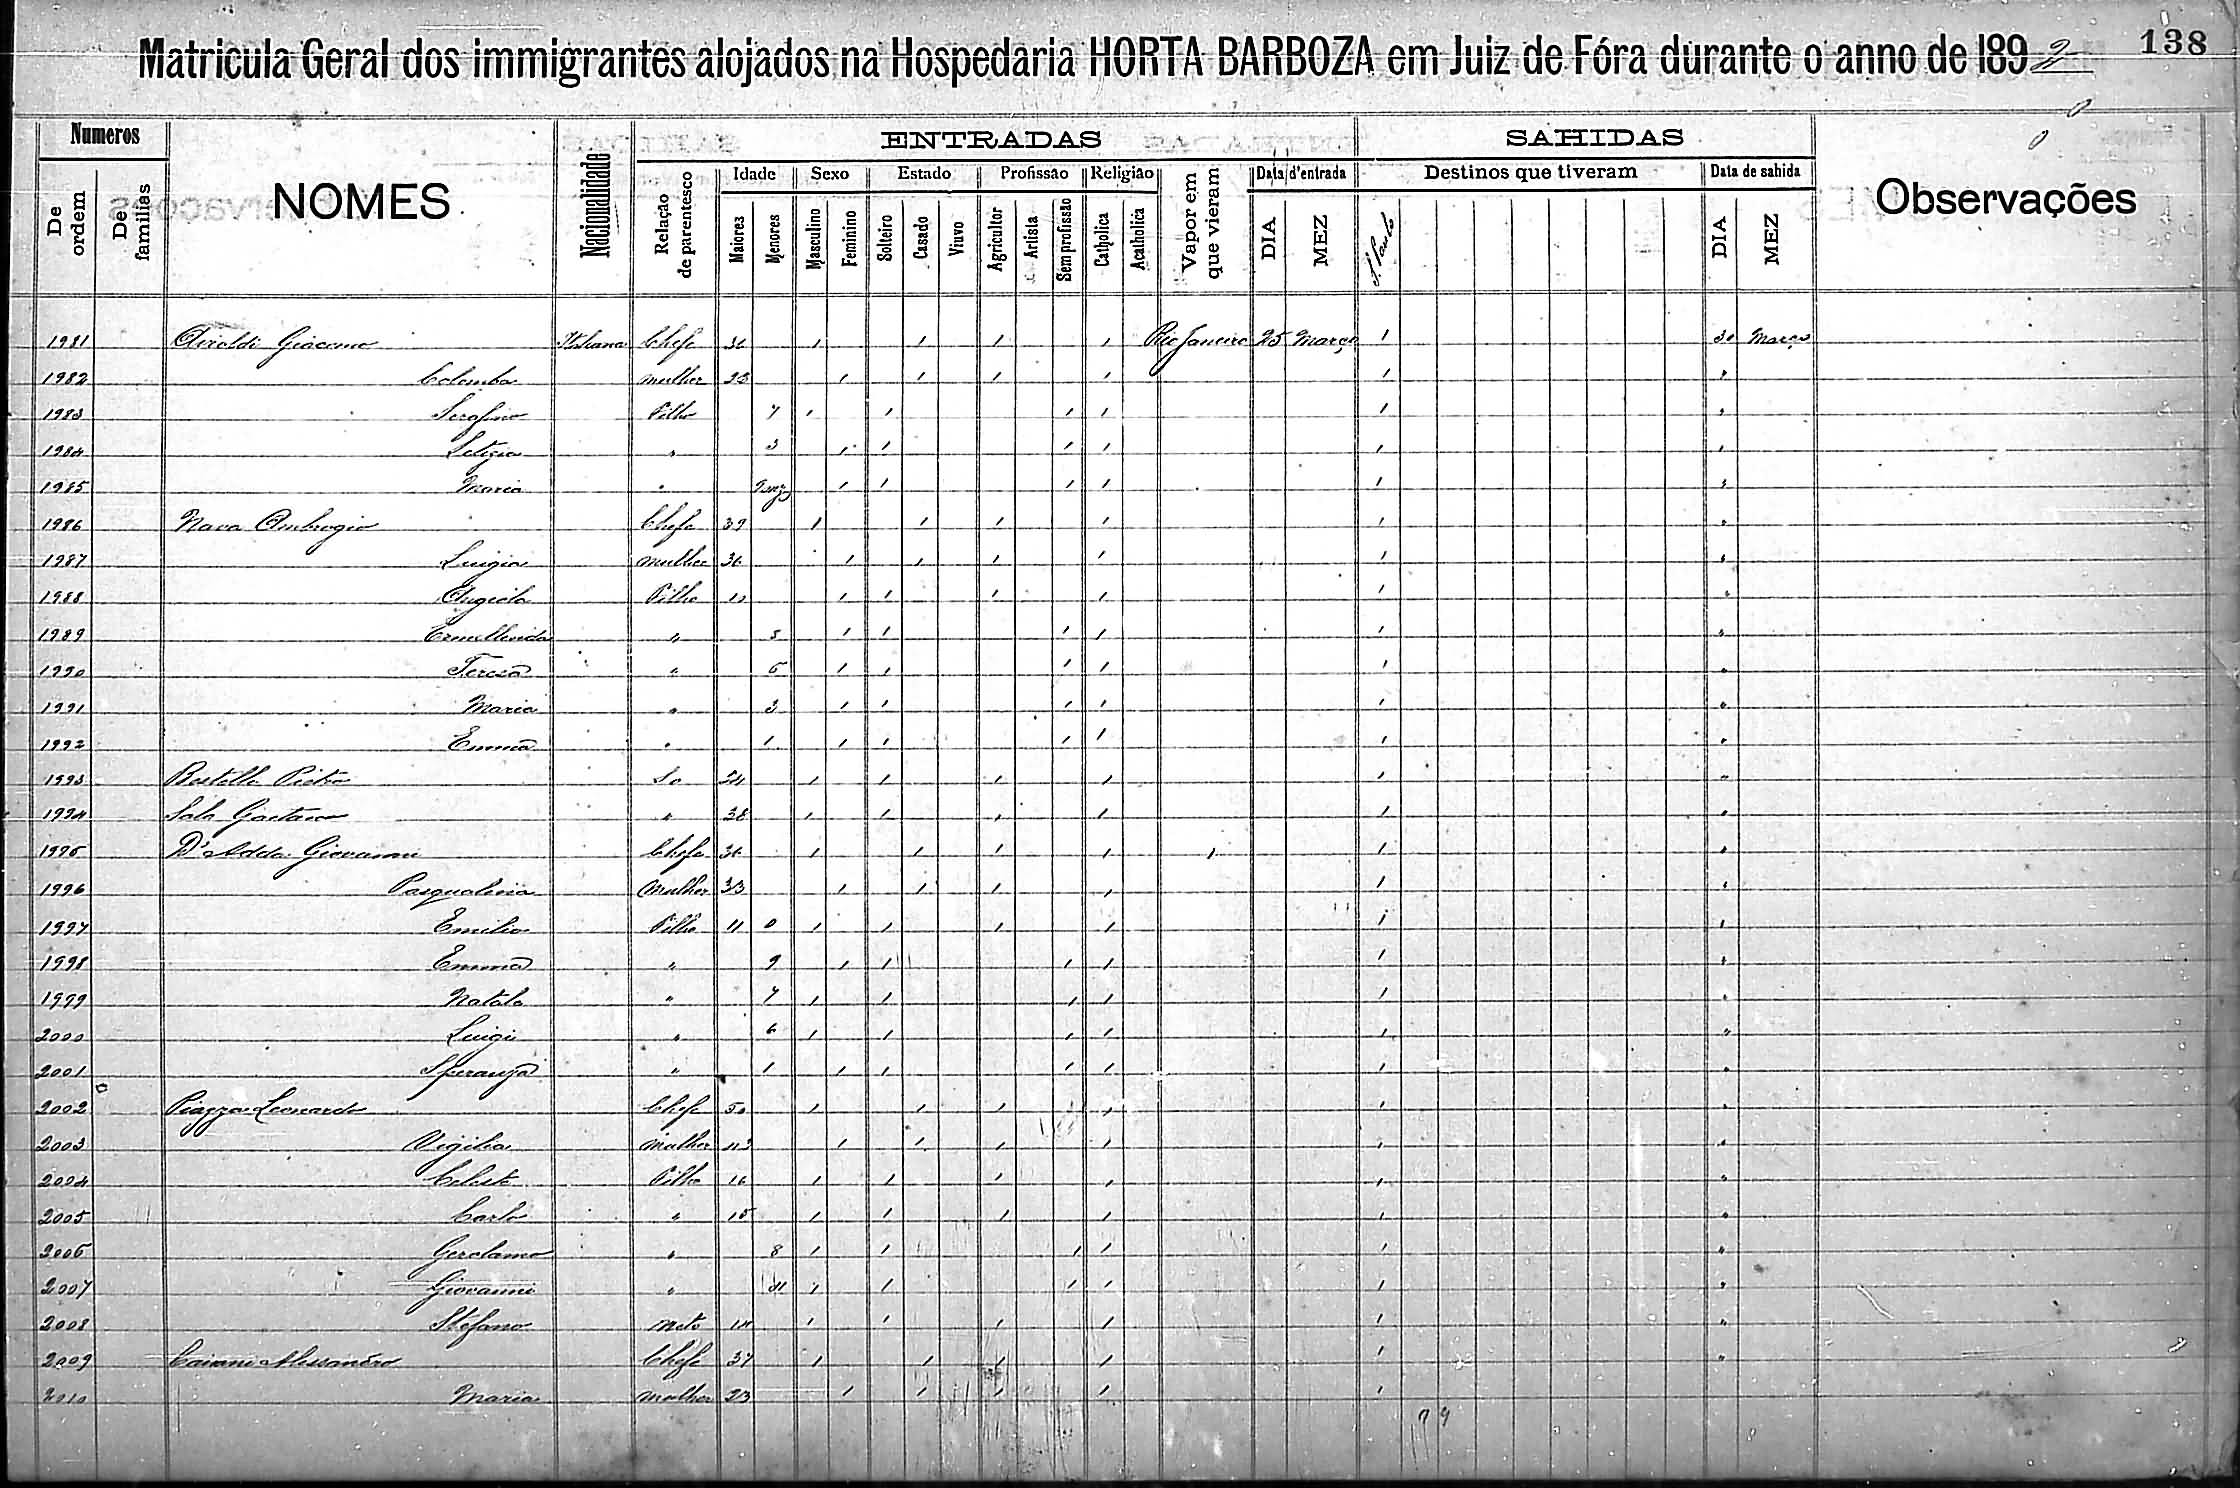 138
Matricula Geral dos immigrantes alojados na Hospedaria HORTA BARBOZA em Juiz de Fóra durante o anno de 1892
Numeros ENTRADAS SAHIDAS
De ordem De familias NOMES Nacionalidade Relação de parentesco Idade Sexo Estado Profissão Religião Vapor em que vieram Data d'entrada Destinos que tiveram Data de sahida Observações
Maiores Menores Masculino Feminino Solteiro Casado Viuvo Agricultor Artista Sem profissão Catholica Acatholica DIA MEZ S. Paulo DIA MEZ
1981 Airoldi Giacomo Italiana Chefe 36 1 1 1 1 Rio Janeiro 25 Março 1 30 Março
1982 Colomba mulher 28 1 1 1 1 1 "
1983 Serafino Filho 7 1 1 1 1 1 "
1984 Letizia " 3 1 1 1 1 1 "
1985 Maria " 1 1 1 1 1 "
1986 Nava Ambrogio Chefe 39 1 1 1 1 1 "
1987 Luigia mulher 36 1 1 1 1 1 "
1988 Angiola Filho 1 1 1 1 1 "
1989 Ermellinda " 1 1 1 1 1 "
1990 Teresa " 5 1 1 1 1 1 "
1991 Maria " 3 1 1 1 1 1 "
1992 Emma " 1 1 1 1 1 1 "
1993 Pietro So 24 1 1 1 1 1 "
1994 Sala Gaetano " 38 1 1 1 1 1 "
1995 D'Adda Giovanni Chefe 36 1 1 1 1 1 1 "
1996 Pasqualina Mulher 33 1 1 1 1 1 "
1997 Emilio Filho 11 0 1 1 1 1 1 "
1998 Emma " 9 1 1 1 1 1 "
1999 Natale " 7 1 1 1 1 1 "
2000 Luigi " 6 1 1 1 1 1 "
2001 Speranza " 1 1 1 1 1 1 "
2002 Piazza Leonardo Chefe 50 1 1 1 1 1 "
2003 Vigilia mulher 42 1 1 1 1 1 "
2004 Celeste Filho 16 1 1 1 1 1 "
2005 Carlo " 15 1 1 1 1 1 "
2006 Gerolamo " 8 1 1 1 1 1 "
2007 Giovanni " 1 1 1 1 1 "
2008 Stefano Neto 1 1 1 1 1 "
2009 Cairani Alessandro Chefe 37 1 1 1 1 1 "
2010 Maria mulher 23 1 1 1 1 1